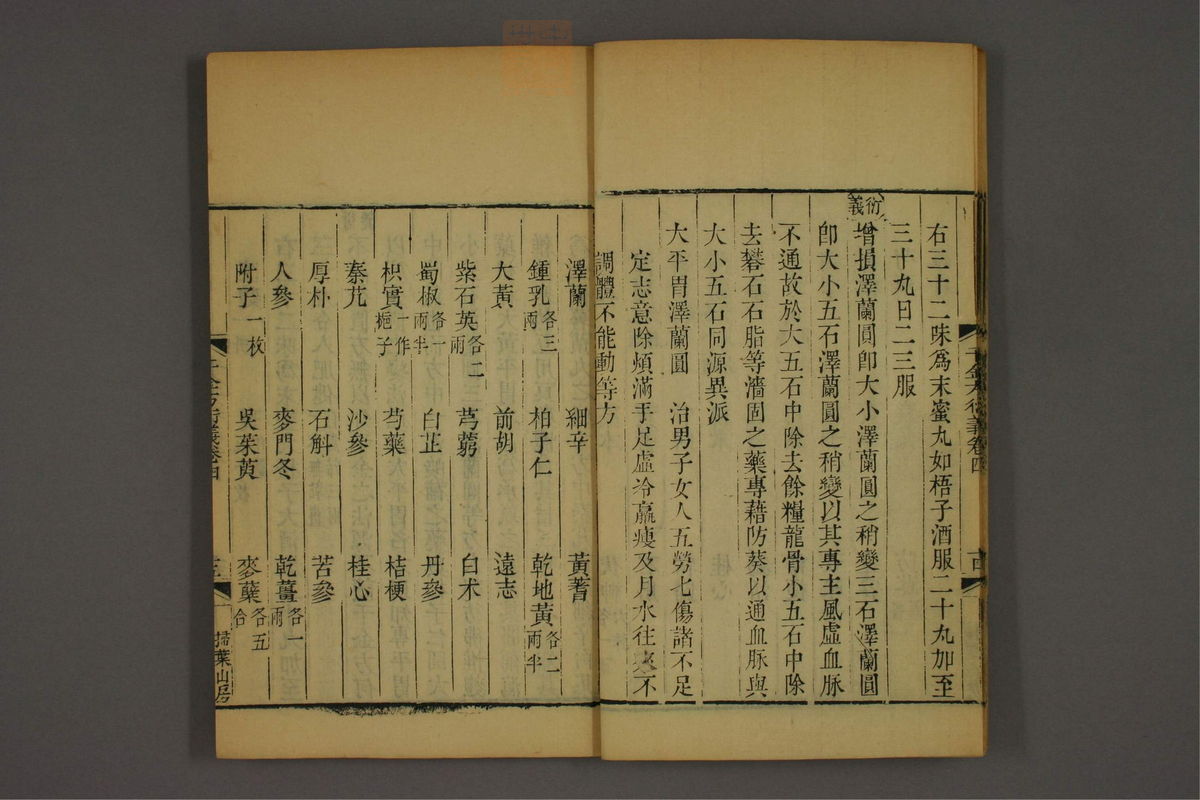 右三十二味爲末蜜丸如梧子酒服二十丸加至
三十丸日二三服
衍義
增損澤蘭圓卽大小澤蘭圓之稍變三石澤蘭圓
卽大小五石澤蘭圓之稍變以其專主風虛血脉
不通故於大五石中除去餘糧龍骨小五石中除
去礬石石脂等濇固之藥專藉防葵以通血脉與
大小五石同源異派
大平胃澤蘭圓 治男子女人五勞七傷諸不足
定志意除煩滿手足虛冷羸瘦及月水往來不
調體不能動等方
澤蘭 細辛 黃蓍
鍾乳各三兩 柏子仁 乾地黃各二兩半
大黃 前胡 遠志
紫石英各二兩 芎藭 白术
蜀椒各一兩半 白芷 丹參
枳實一作梔子 芍藥 桔梗
秦艽 沙參 桂心
厚朴 石斛 苦參
人參 麥門冬 乾薑各一兩
附子一枚 吳茱萸 麥蘗各五合
千金方衍義卷四
掃葉山房